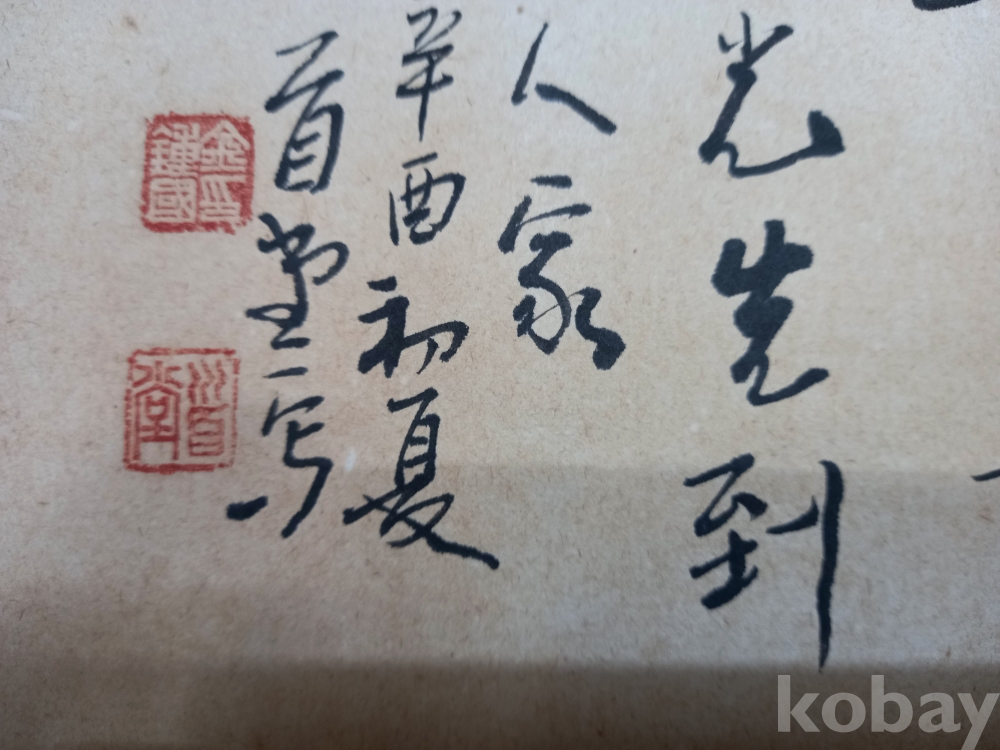 光先到
人家
辛酉初夏
首堂寫
金鍾國印
首堂
kobay